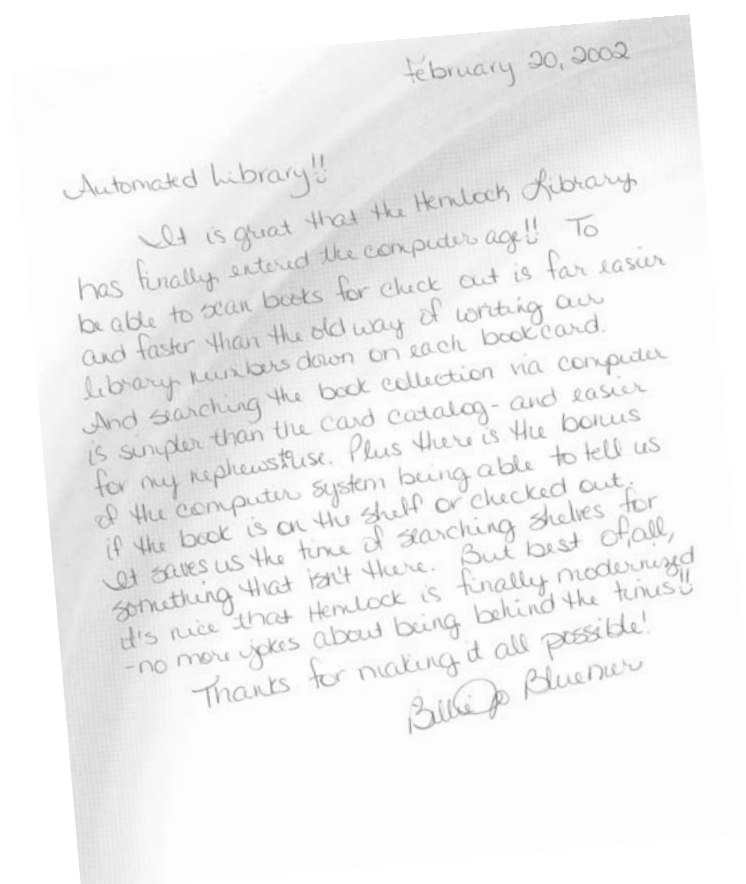 February 20, 2002
Automated Library!!
It is great that the Hemlock Library
has finally entered the computer age!! To
be able to scan books for check out is far easier
and faster than the old way of writing our
library numbers down on each book card.
And searching the book collection via computer
is simpler than the card catalog - and easier
for my nephews to use. Plus there is the bonus
of the computer system being able to tell us
if the book is on the shelf or checked out.
It saves us the time of searching shelves for
something that isn't there. But best of all,
it's nice that Hemlock is finally modernized
- no more jokes about being behind the times!!
Thanks for making it all possible!
Billie Jo